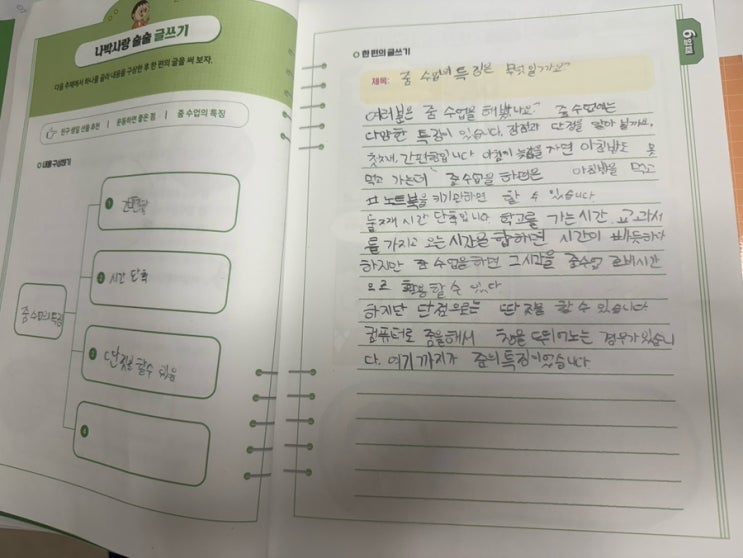 나박사랑 술술 글쓰기
다음 주제에서 하나를 골라 내용을 구상한 후 한 편의 글을 써 보자.
친구 생일 선물 추천 | 운동하면 좋은 점 | 줌 수업의 특징
내용 구상하기
줌 수업의 특징
1 간편함
2 시간 단축
3 단 딴짓을 할수 있음
4
6일차
한 편의 글쓰기
제목: 줌 수업의 특징은 무엇일까요?
여러분은 줌 수업을 해봤나요? 줌 수업에는
다양한 특징이 있습니다. 장점과 단점을 알아 볼까요.
첫재, 간편함입니다 아침에 늦잠을 자면 아침밥도 못
먹고 가는데 줌 수업을 하면은 아침밥을 먹고
노트북을 키기만하면 할 수 있습니다
둘재 시간 단축입니다 학교를 가는 시간, 교과서
를 가지고 오는 시간을 합하면 시간이 빠듯하다
하지만 줌 수업을 하면 그시간을 줌수업 준비시간
으로 활용 할 수 있다
하지만 단점으로는 딴짓을 할 수 있습니다
컴퓨터로 줌을해서 창을 띄어노는 경우가 있습니
다. 여기 까지가 줌의 특징이었습니다